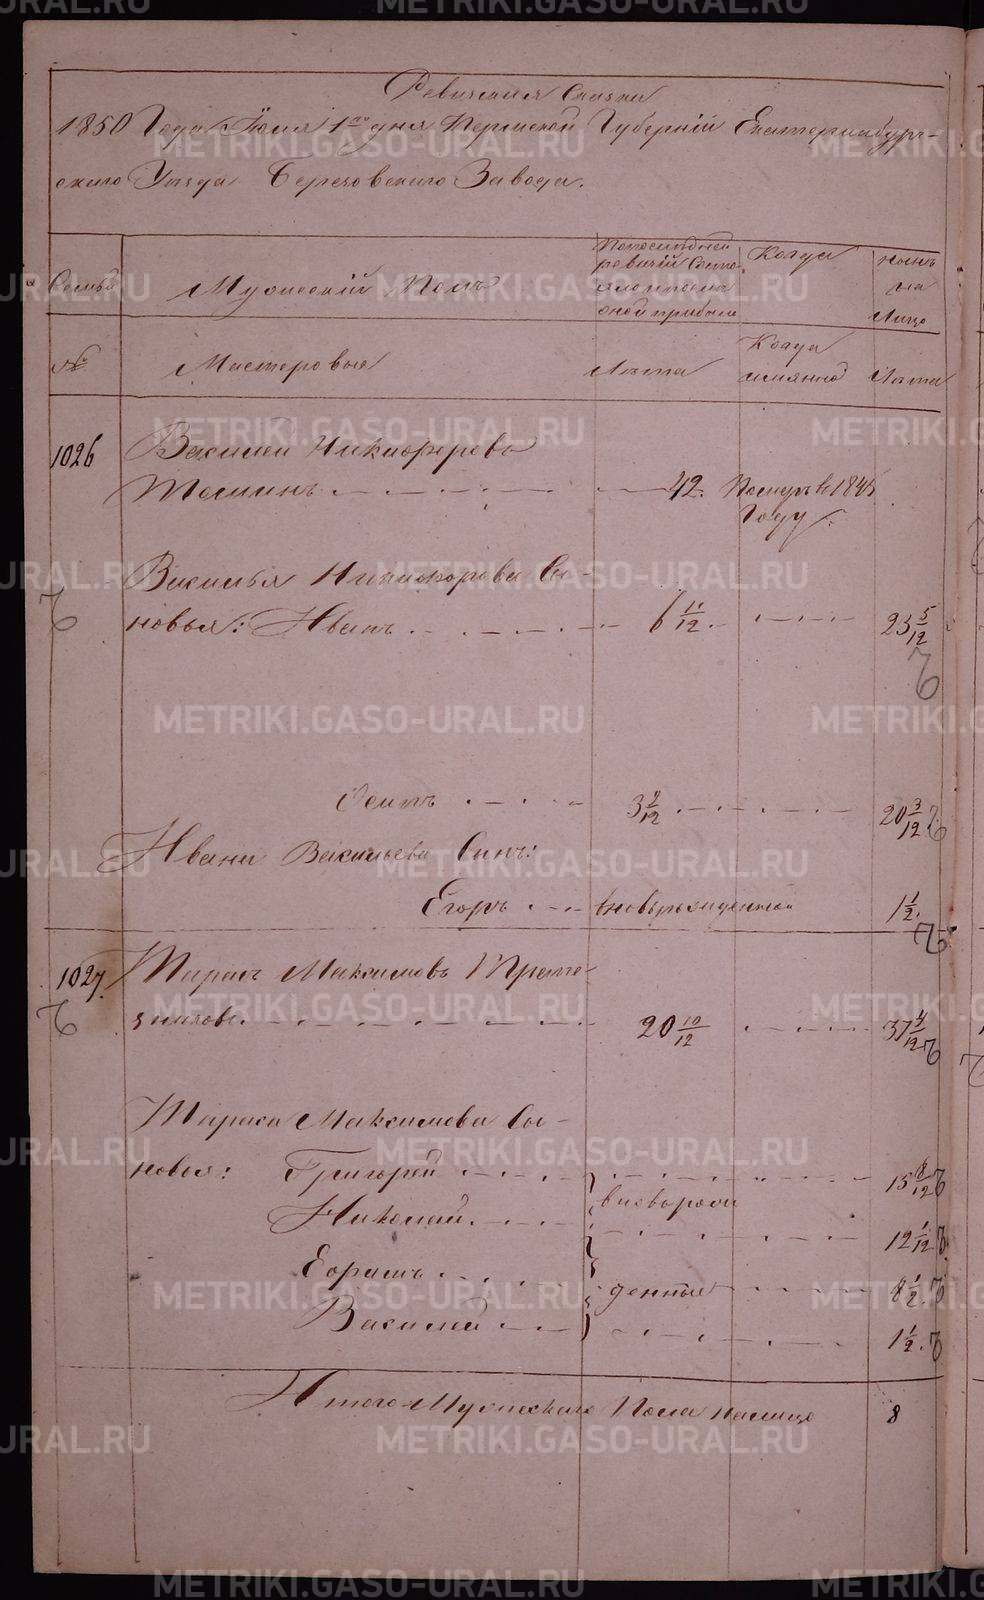 Ревизская Сказка
1850 Года Июня 1го дня Пермской Губернїи Екатеринбург-
скаго Уезда Березовскаго Завода.
Семьи
Мужескїй Полъ
По последней
ревизїи Состо-
яло и после
оной прибыло
Когда
ныне
на
Лицо
№
Мастеровые
Лета
Когда
имянно
Лета
1026
Василей Никифоровъ
42. Померъ въ 184
Году.
Василья Никифорова Сы-
новья: Иванъ 6 11/12 23 5/12
Осипъ 3 2/12 20 3/12
Ивана Васильева Сынъ:
Егоръ вновьрожденной 1 1/2.
1027.
Тарасъ Максимовъ
20 10/12 37 4/12
Тараса Максимова Сы-
новья: Григорей 15 8/12
вновьрож
Николай 12 1/12
Ефимъ денные 8 1/2.
Василей 1 1/2.
Итого Мужескаго Пола налицо 8
METRIKI.GASO-URAL.RU